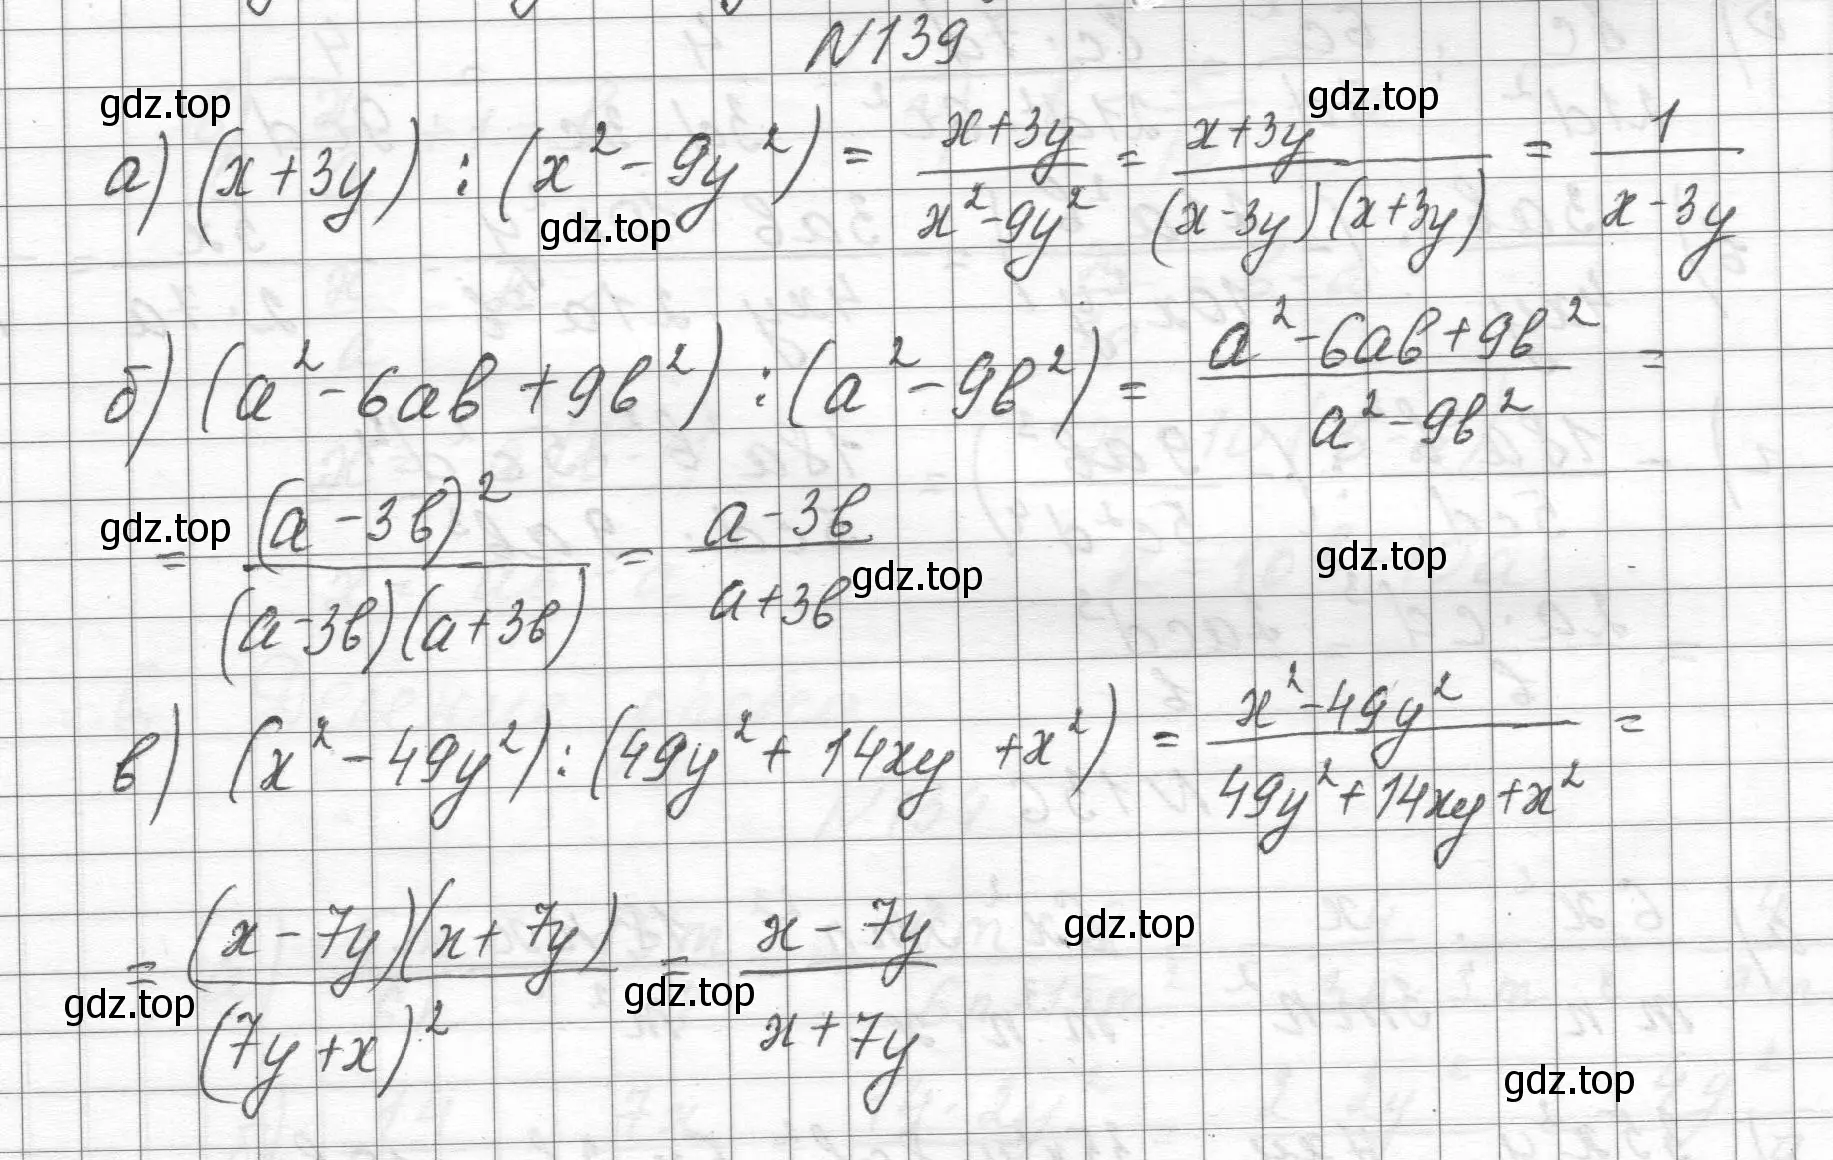 N139
gdz.top
gdz.top
а) (x+3y) : (x²-9y²) = (x+3y)/(x²-9y²) = (x+3y)/((x-3y)(x+3y)) = 1/(x-3y)
gdz.top
б) (a²-6ab+9b²) : (a²-9b²) = (a²-6ab+9b²)/(a²-9b²) =
gdz.top
= (a-3b)²/((a-3b)(a+3b)) = (a-3b)/(a+3b)
gdz.top
gdz.top
в) (x²-49y²) : (49y²+14xy+x²) = (x²-49y²)/(49y²+14xy+x²) =
= ((x-7y)(x+7y))/(7y+x)² = (x-7y)/(x+7y)
gdz.top
gdz.top
gdz.top
gdz.top